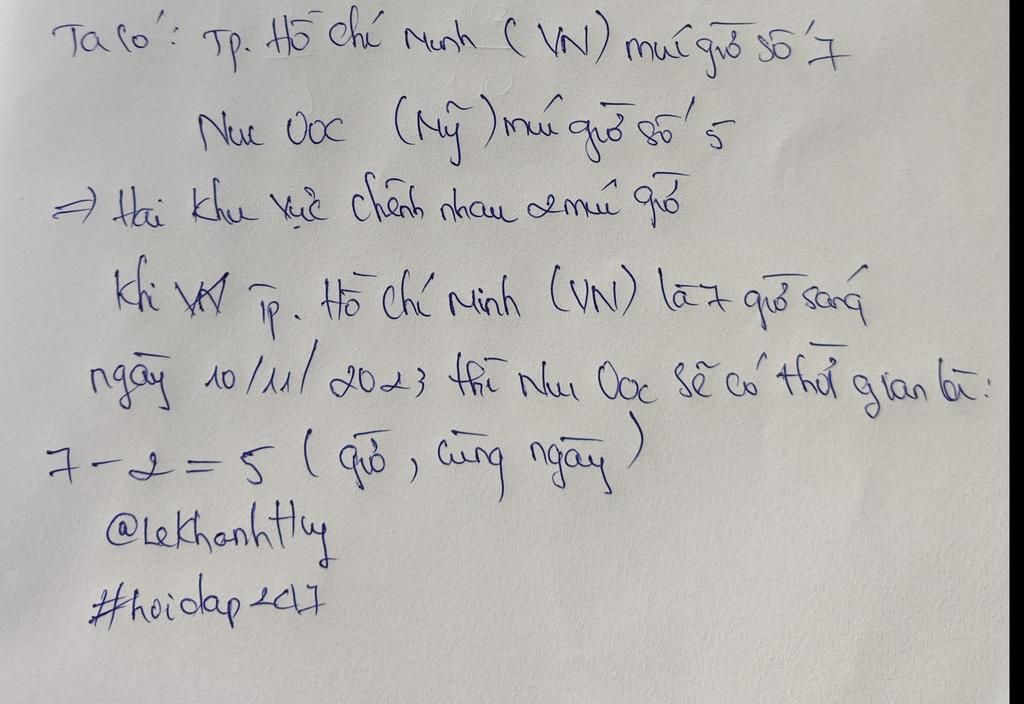 Ta có: Tp. Hồ Chí Minh (VN) múi giờ số 7
Niu Ooc (Mỹ) múi giờ số 5
=> Hai khu vực chênh nhau 2 múi giờ
Khi VN Tp. Hồ Chí Minh (VN) là 7 giờ sáng
ngày 10/11/2023 thì Niu Ooc sẽ có thời gian là:
7 - 2 = 5 (giờ, cùng ngày)
@LeKhanhHuy
#hoidap247